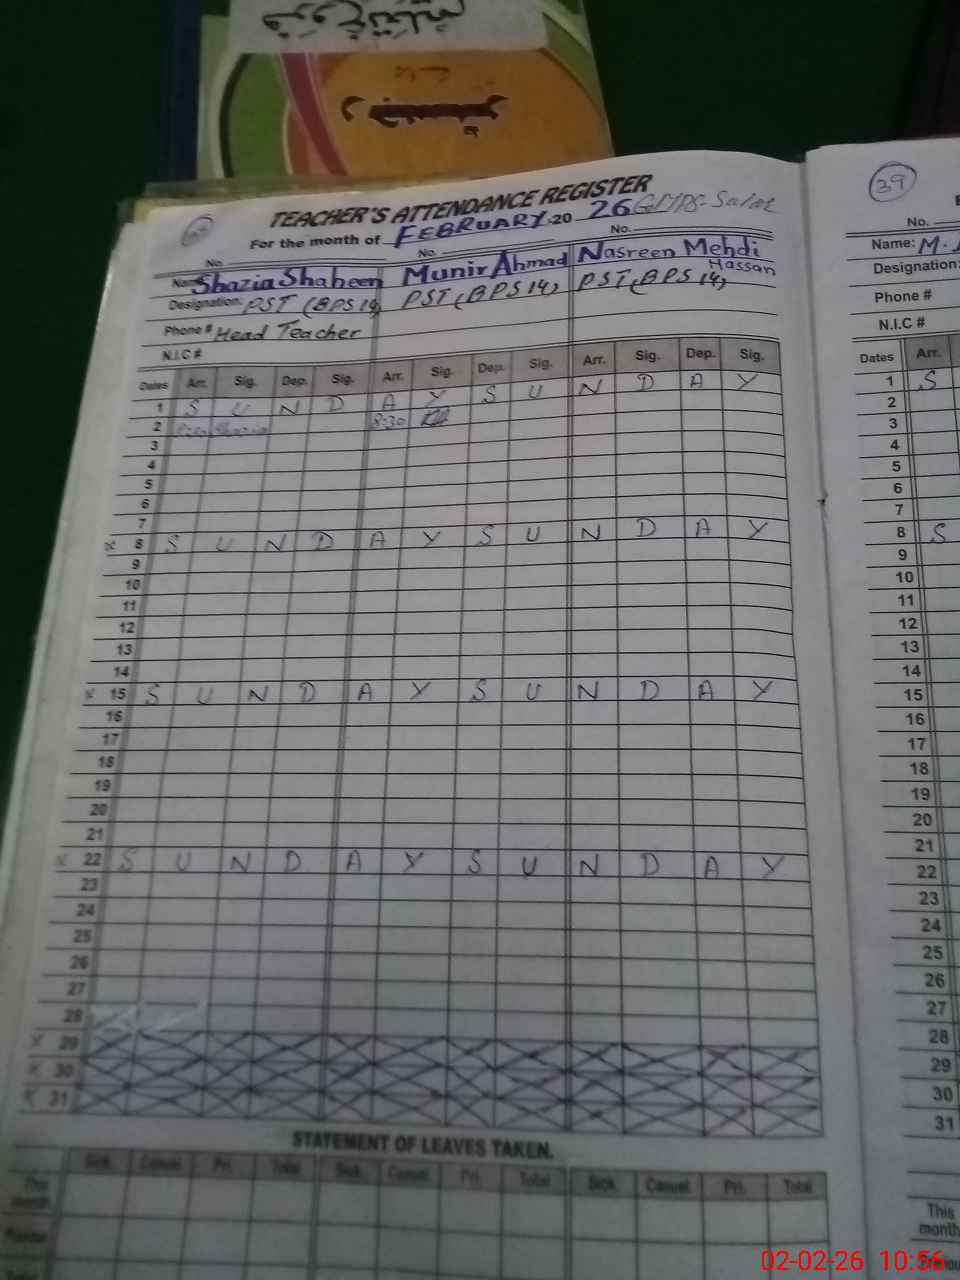 TEACHER'S ATTENDANCE REGISTER
For the month of FEBRUARY 20 26 GMPS-Salar
No. No. No.
Name: Shazia Shaheen Munir Ahmad Nasreen Mehdi
Hassan
Designation: PST (BPS 14) PST (BPS 14) PST (BPS 14)
Phone # Head Teacher
N.I.C #
Dates Arr. Sig. Dep. Sig. Arr. Sig. Dep. Sig. Arr. Sig. Dep. Sig.
1 S U N D A Y S U N D A Y
2 8:30
3
4
5
6
7
x 8 S U N D A Y S U N D A Y
9
10
11
12
13
14
x 15 S U N D A Y S U N D A Y
16
17
18
19
20
21
x 22 S U N D A Y S U N D A Y
23
24
25
26
27
28
x 29
x 30
x 31
STATEMENT OF LEAVES TAKEN.
Sick. Casual Pri. Total Sick. Casual Pri. Total Sick. Casual Pri. Total
This
month
39
No.
Name: M.
Designation:
Phone #
N.I.C #
Dates Arr.
1 S
2
3
4
5
6
7
8 S
9
10
11
12
13
14
15
16
17
18
19
20
21
22
23
24
25
26
27
28
29
30
31
This
month
02-02-26 10:56